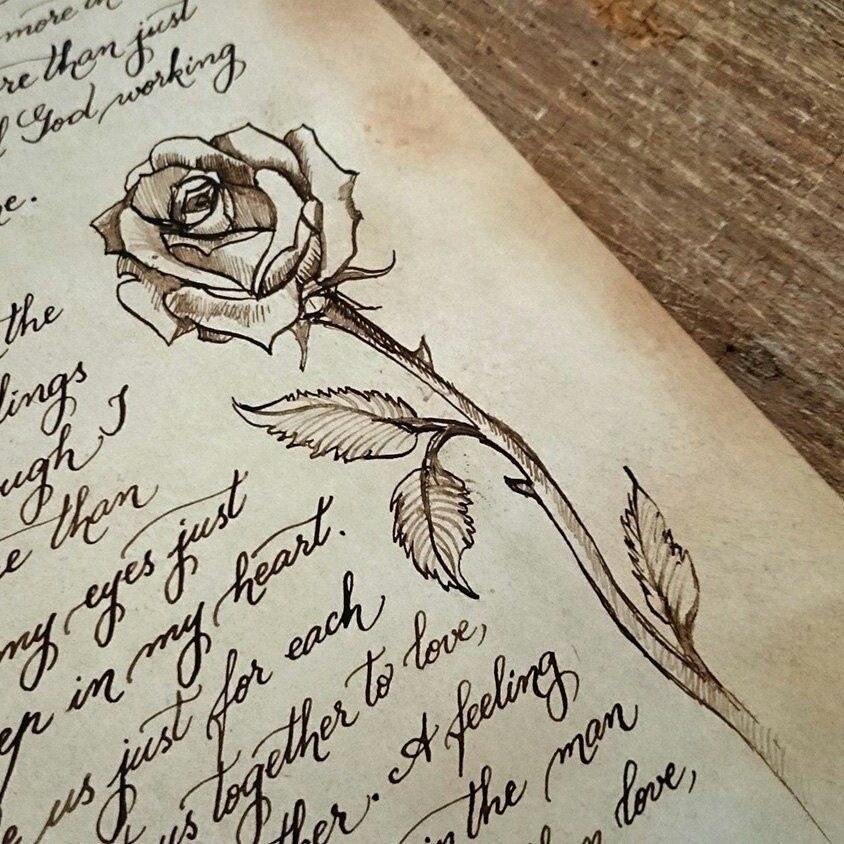 more in
than just
God working
the
eyes just
than
my eyes just
in my heart.
us just for each
us together to love,
. A feeling
in the man
love,